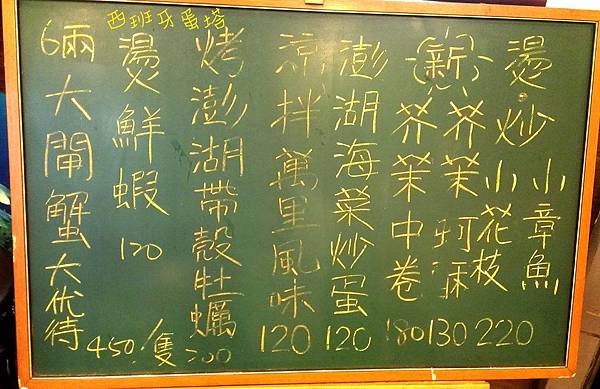 西班牙蛋塔
燙.炒小小章魚
花枝 220
新 芥茉珂琳 130
芥茉中卷 180
澎湖海菜炒蛋 120
涼拌萬里風味 120
烤澎湖帶殼牡蠣 200
燙鮮蝦 120
6兩大閘蟹大优待 450/隻